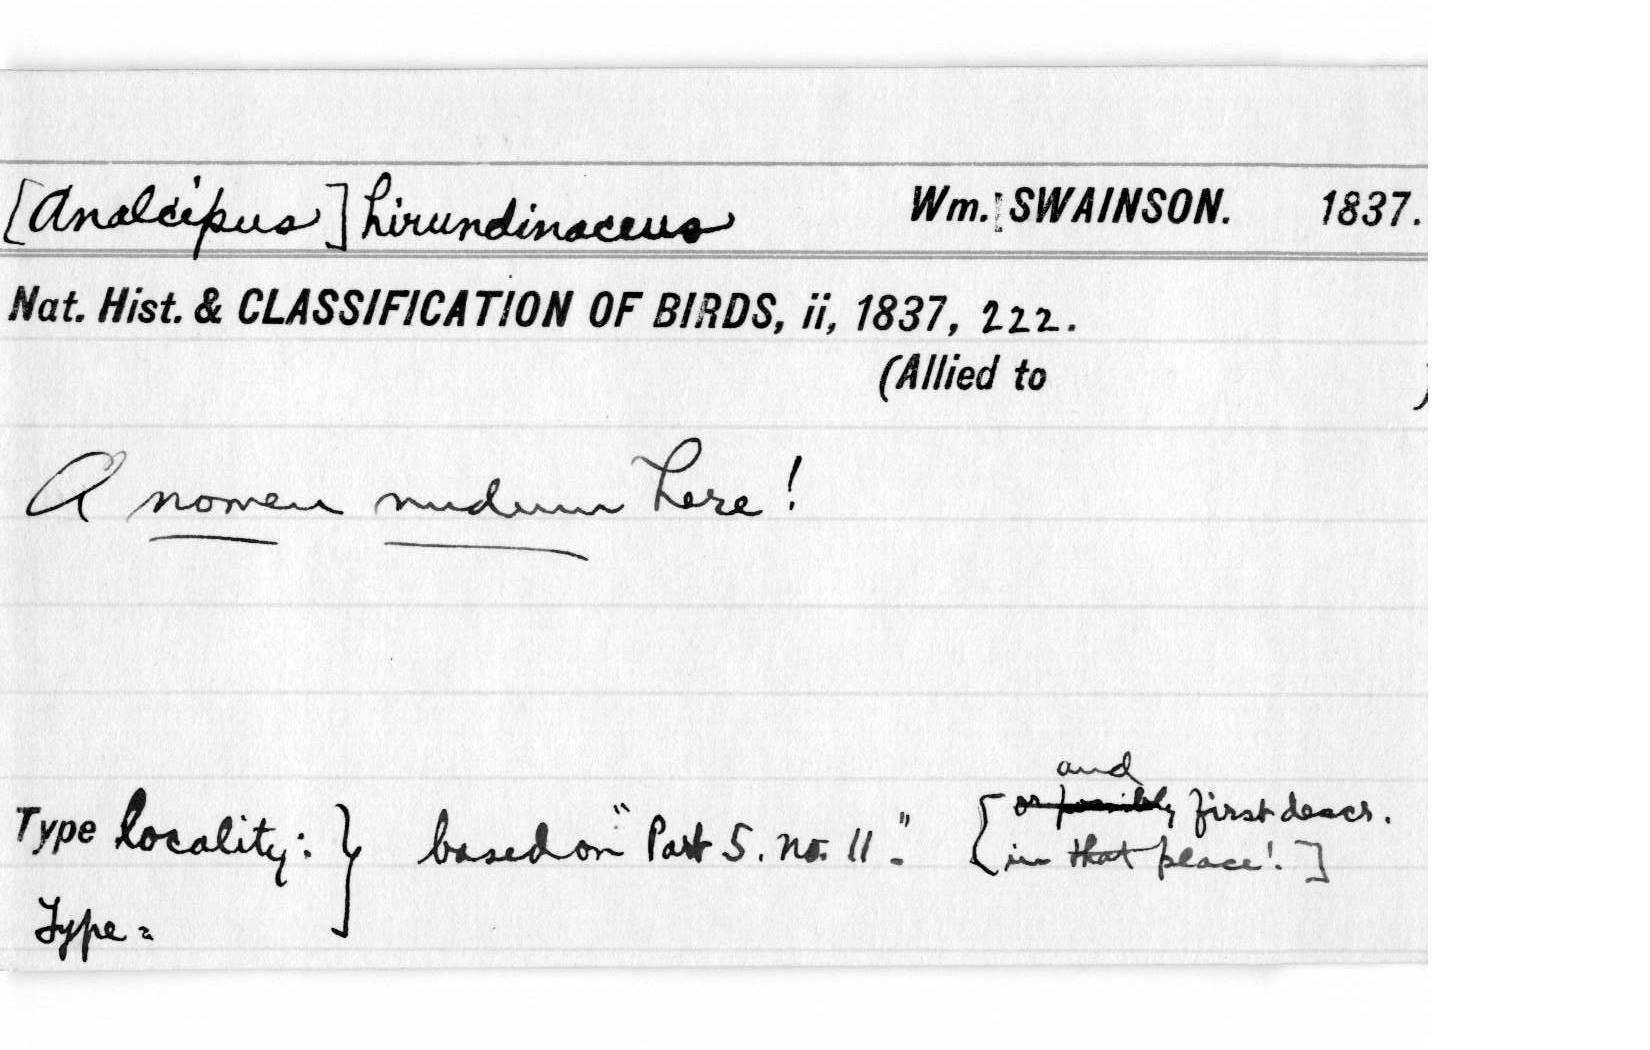 [Analcipus] hirundinaceus Wm. SWAINSON. 1837.
Nat. Hist. & CLASSIFICATION OF BIRDS, ii, 1837, 222.
(Allied to )
A nomen nudum here!
and
or possibly first descr.
Type locality: } based on "Part 5. no. 11". [in that place!]
Type =